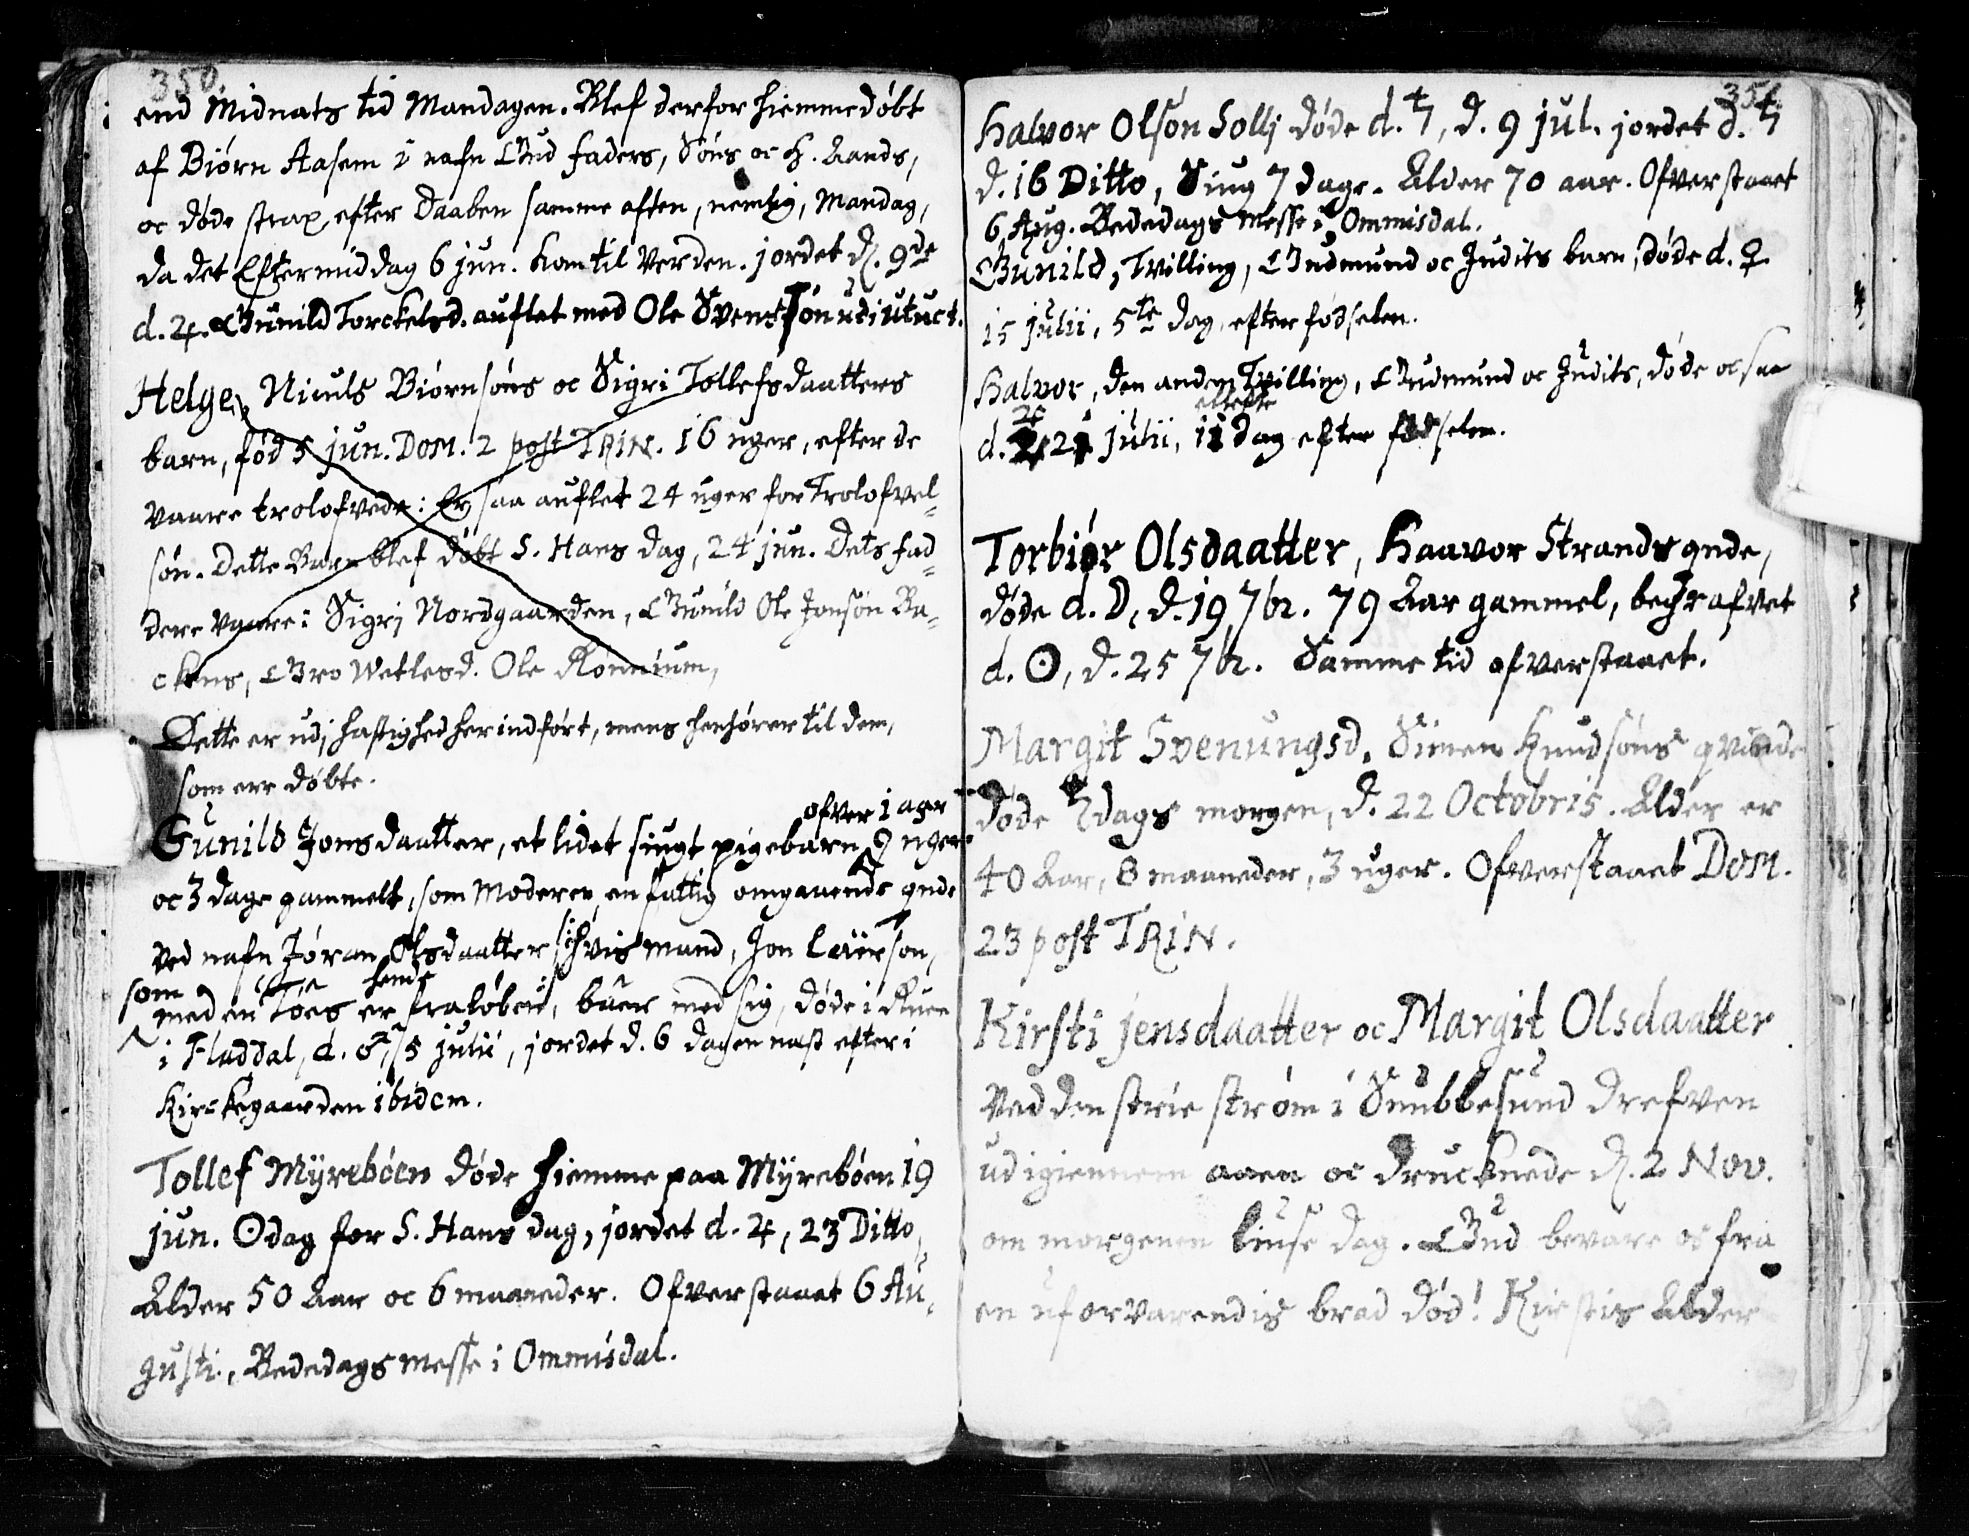 350.
end Midnats tid Mandagen. Blef derfor hiemmedøbt
af Biørn Aasem i nafn Gud faders, Søns oc H. Aands,
oc døde strax efter Daaben samme aften, nemlig, Mandag,
da det Eftermiddag 6 jun. kom til Verden. jordet d. 9de
d. ♃. Gunild Torckelsd. auflet med Ole Svenssøn
Helge, Niculs Biørnsøns oc Sigri Tollefsdaatters
barn, fød 5 jun. Dom. 2 post TRIN. 16 uger, efter de
vaare trolofvede: Er saa auflet 24 uger for Trolofvel-
søn. Dette Barn blef døbt S. Hans dag, 24 jun. Dets fad-
dere vaare: Sigrj Nordgaarden, Gunild Ole Jonsøn Ba-
ckens, Gro Wetlesd. Ole Rønnium,
Dette er udj hastighed her indført, mens henhører til dem,
som ere døbte.
ofver 1 aar
Gunild Jonsdaatter, et lidet siugt pigebarn 9 uger
oc 3 dage gammelt, som Moderen, en fattig omgaaende qnde
ved nafn Jøran Olsdaatter, hvis mand, Jon Laursøn,
som hende
med en Toes er fraløben, baer med sig, døde i
i Fladdal, d. ♂, 5 julii, jordet d. 6 dagen nest efter i
Kirckegaarden ibidem.
Tollef Myrebøen døde hiemme paa Myrebøen 19
jun. ☉dag for S. Hans dag, jordet d. ♃, 23 Ditto,
Alder 50 Aar oc 6 maaneder. Ofverstaaet 6 Au-
gusti., Bededags Messe i Ommisdal.
351.
Halvor Olsøn Sollj døde d. ♄, d. 9 jul. jordet d. ♄
d. 16 Ditto, Siug 7 dage. Alder 70 aar. Ofverstaaet
6 Aug. Bededags Messe i Ommisdal.
Gunild, Tvilling, Gudmund oc Judits barn, døde d. ♀
15 julii, 5te dag efter fødselen.
Halvor, den anden Tvilling, Gudmund oc Judits, døde ocsaa
ellefte
d. 21 julii, 11 dag efter fødselen.
Torbiør Olsdaatter, Haavor Strands qnde,
døde d. ☽, d. 19 7br. 79 Aar gammel, begrafvet
d. ☉, d. 25 7br. Samme tid ofverstaaet.
Margit Svenungsd. Simen Knudsøns qvinde
døde ♄dags morgen, d. 22 Octobris. Alder er
40 Aar, 8 maaneder, 3 uger. Ofverstaaet Dom.
23 post TRIN.
Kirsti jensdaatter oc Margit Olsdaatter
ved den strie strøm i Sunbbesund drefven
ud igiennem aaen oc drucknede d. 2 Nov.
om morgenen liuse dag. Gud bevare os fra
en uforvarendis brad død! Kirstis Alder